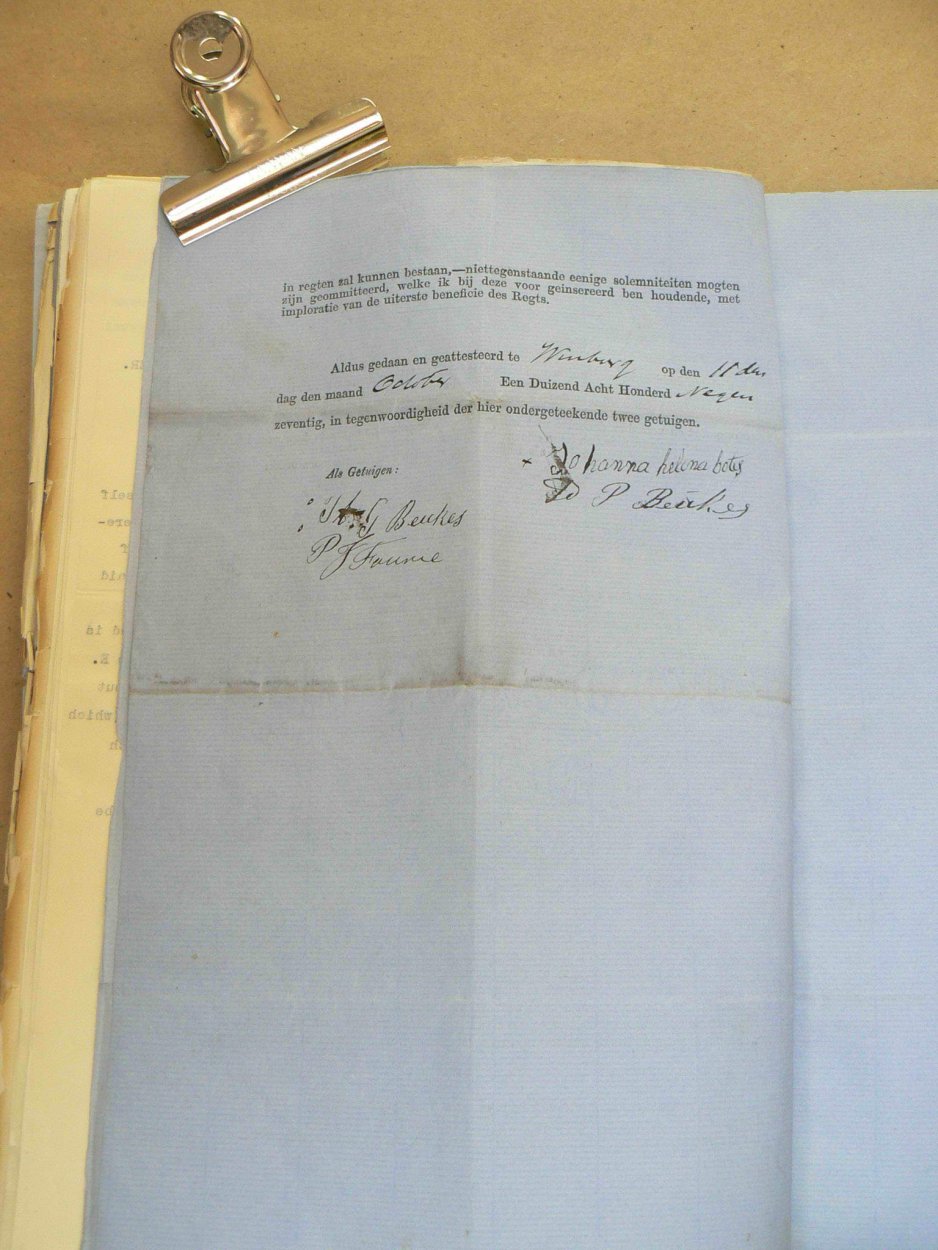 in regten zal kunnen bestaan,—niettegenstaande eenige solemniteiten mogten
zijn geommitteerd, welke ik bij deze voor geinsereerd ben houdende, met
imploratie van de uiterste beneficie des Regts.
Aldus gedaan en geattesteerd te Winburg op den 11 den
dag den maand October Een Duizend Acht Honderd Negen
zeventig, in tegenwoordigheid der hier ondergeteekende twee getuigen.
Als Getuigen:
Johanna helena botes
P Beukes
G Beukes
P J Fourie
self
ere-
f
aid
d is
H.
out
which
ch
be